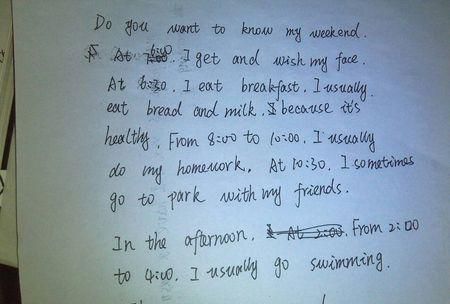 Do you want to know my weekend.
At 6:00. I get and wish my face.
At 6:30. I eat breakfast. I usually
eat bread and milk. because it's
healthy. From 8:00 to 10:00. I usually
do my homework. At 10:30. I sometimes
go to park with my friends.
In the afternoon. From 2:00
to 4:00. I usually go swimming.